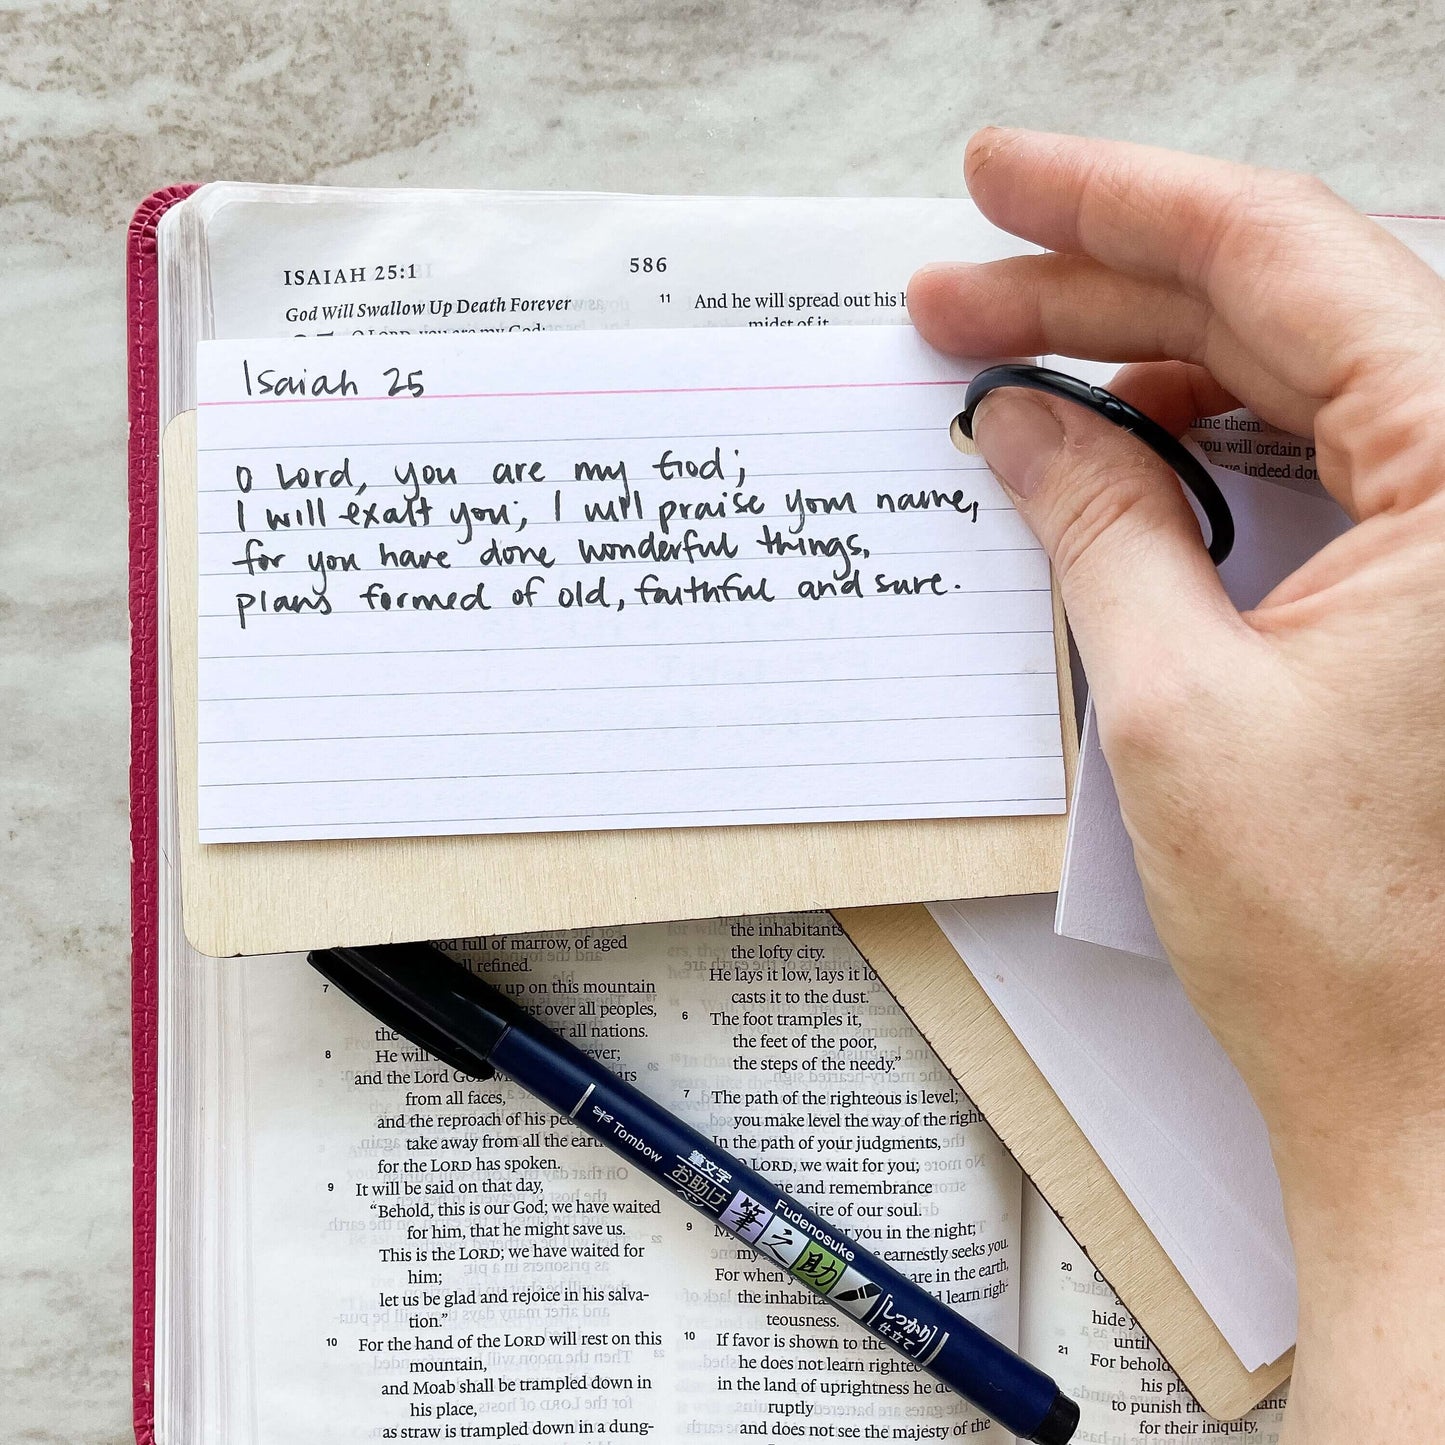 ISAIAH 25:1
586
God Will Swallow Up Death Forever
O LORD, you are my God;
11 And he will spread out his
midst of it
Isaiah 25
O Lord, you are my God;
I will exalt you; I will praise your name,
for you have done wonderful things,
plans formed of old, faithful and sure.
ume them.
you will ordain
indeed
full of marrow, of aged
refined.
7 up on this mountain
over all peoples,
the all nations.
8 He will
and the Lord GOD
from all faces,
and the reproach of his
take away from all the
for the LORD has spoken.
9 It will be said on that day,
“Behold, this is our God; we have waited
for him, that he might save us.
This is the LORD; we have waited for
him;
let us be glad and rejoice in his salva-
tion.”
10 For the hand of the LORD will rest on this
mountain,
and Moab shall be trampled down in
his place,
as straw is trampled down in a dung-
the inhabitants
the lofty city.
He lays it low, lays it
casts it to the dust.
6 The foot tramples it,
the feet of the poor,
the steps of the needy.”
7 The path of the righteous is level;
you make level the way of the
In the path of your judgments,
O LORD, we wait for you;
and remembrance
of our soul.
9 you in the night;
my earnestly seeks you.
For when are in the earth,
the learn righ-
teousness.
10 If favor is shown to the
he does not learn
in the land of uprightness he
ruptly
and does not see the majesty of the
Tombow
筆文字
お助け
ペン
筆之助
Fudenosuke
[しっかり]
仕立て
20
hide
until
21 For behold
his
to punish
for their iniquity,